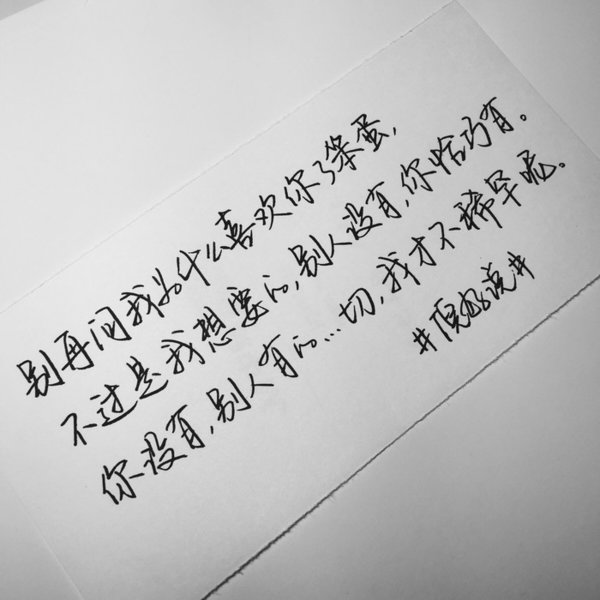 别再问我为什么喜欢你了笨蛋,
不过是我想要的,别人没有,你恰巧有。
你没有,别人有的…切,我才不稀罕呢。